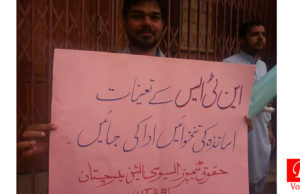 این ٹی ایس کے تعینات
اساتذہ کی تنخواہیں ادا کی جائیں
حقوق ٹیچرز ایسوسی ایشن بلوچستان
Vo